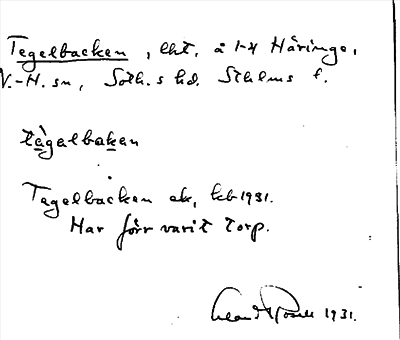 Tegelbacken, lht. å 1-4 Häringe,
V.-H. sn, Soth.s hd. Sthlms l.
tègalbaken
Tegelbacken ek, kb 1931.
Har förr varit torp.
1931.